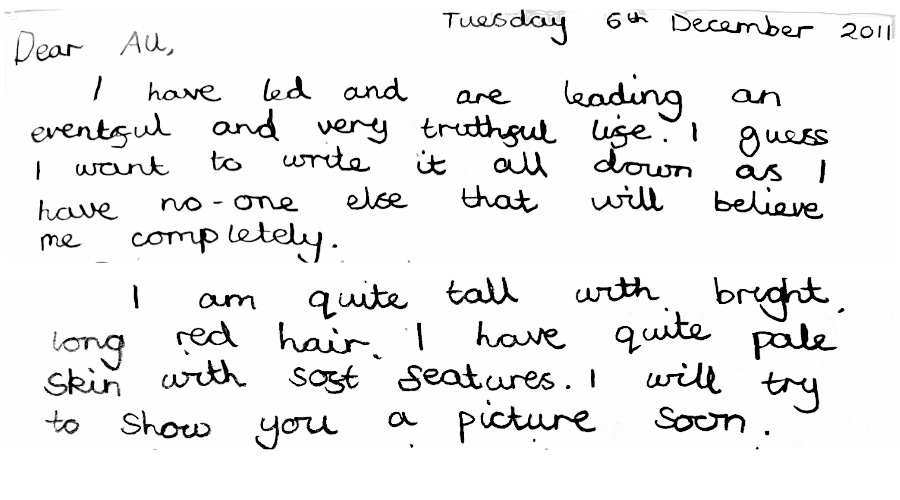 Tuesday 6th December 2011
Dear All,
I have led and are leading an
eventful and very truthful life. I guess
I want to write it all down as I
have no-one else that will believe
me completely.
I am quite tall with bright,
long red hair. I have quite pale
skin with soft features. I will try
to show you a picture soon.